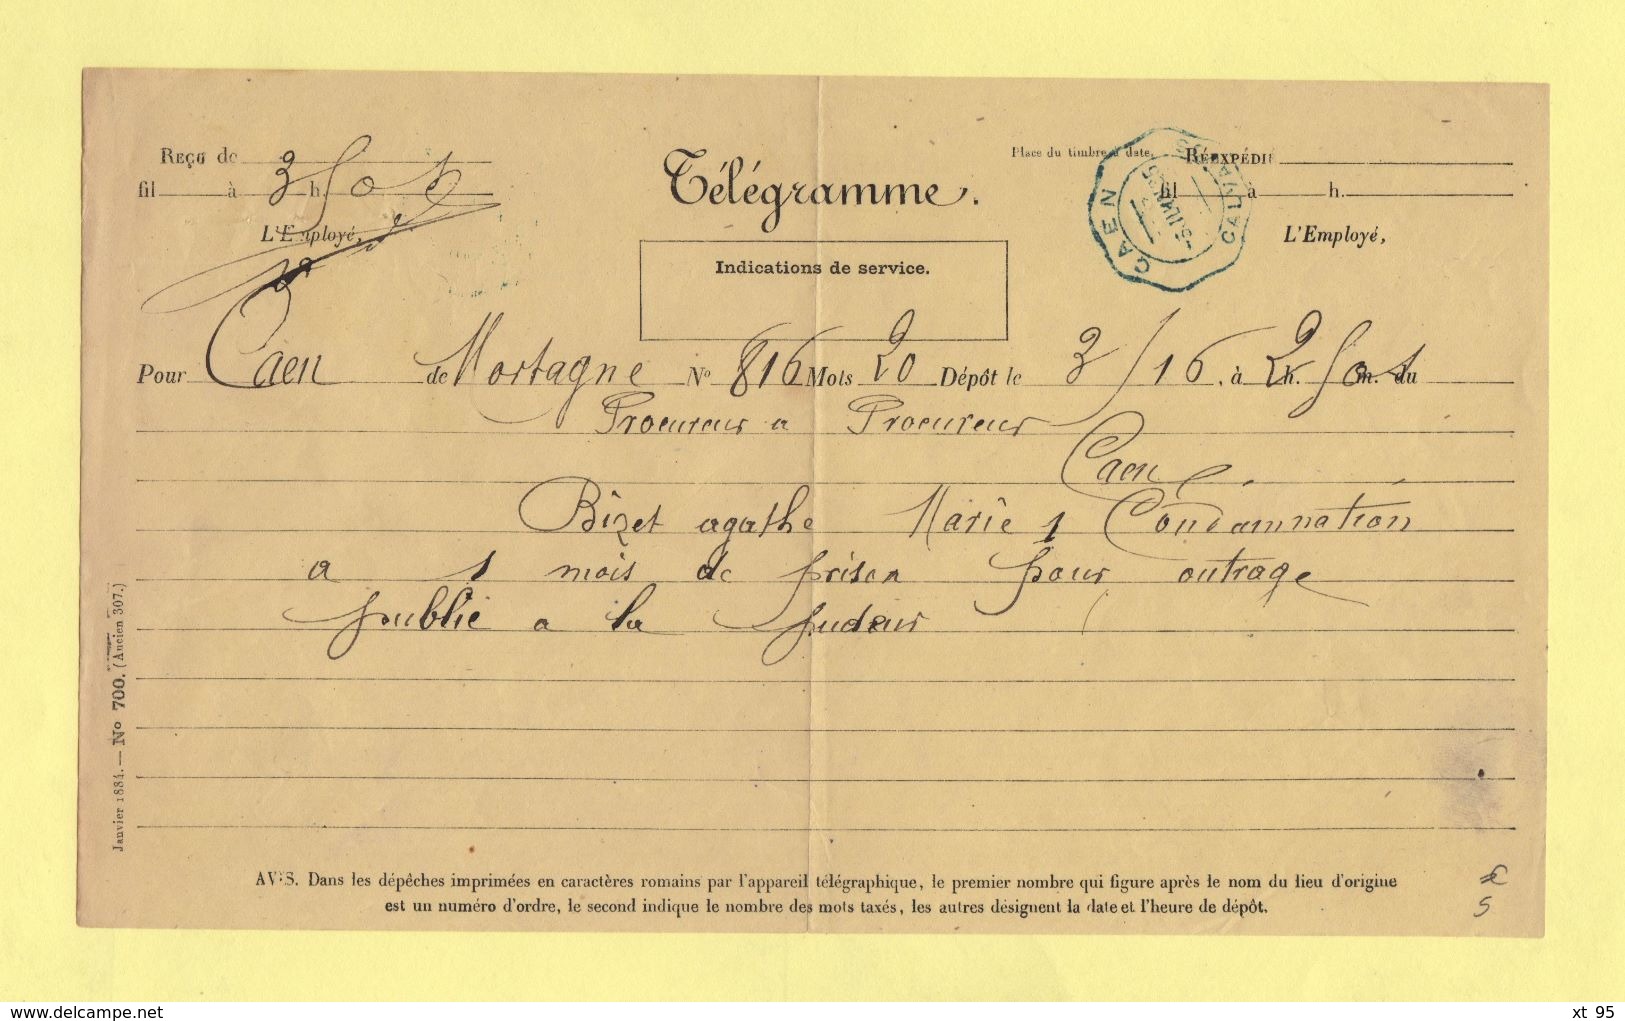 Reçu de
fil à 3 h. 50 s
L'Employé,
Télégramme.
Indications de service.
Place du timbre à date.
CAEN
CALVADOS
Réexpédié
fil à h.
L'Employé,
Pour Caen de Mortagne N° 816 Mots 20 Dépôt le 3/16, à 2 h. 50 m. du s
Procureur a Procureur
Caen
Bizet agathe Marie 1 Condamnation
a 1 mois de prison pour outrage
public a la pudeur
Janvier 1884. — N° 700. (Ancien 307.)
AVIS. Dans les dépêches imprimées en caractères romains par l'appareil télégraphique, le premier nombre qui figure après le nom du lieu d'origine
est un numéro d'ordre, le second indique le nombre des mots taxés, les autres désignent la date et l'heure de dépôt.
5
www.delcampe.net
xt 95